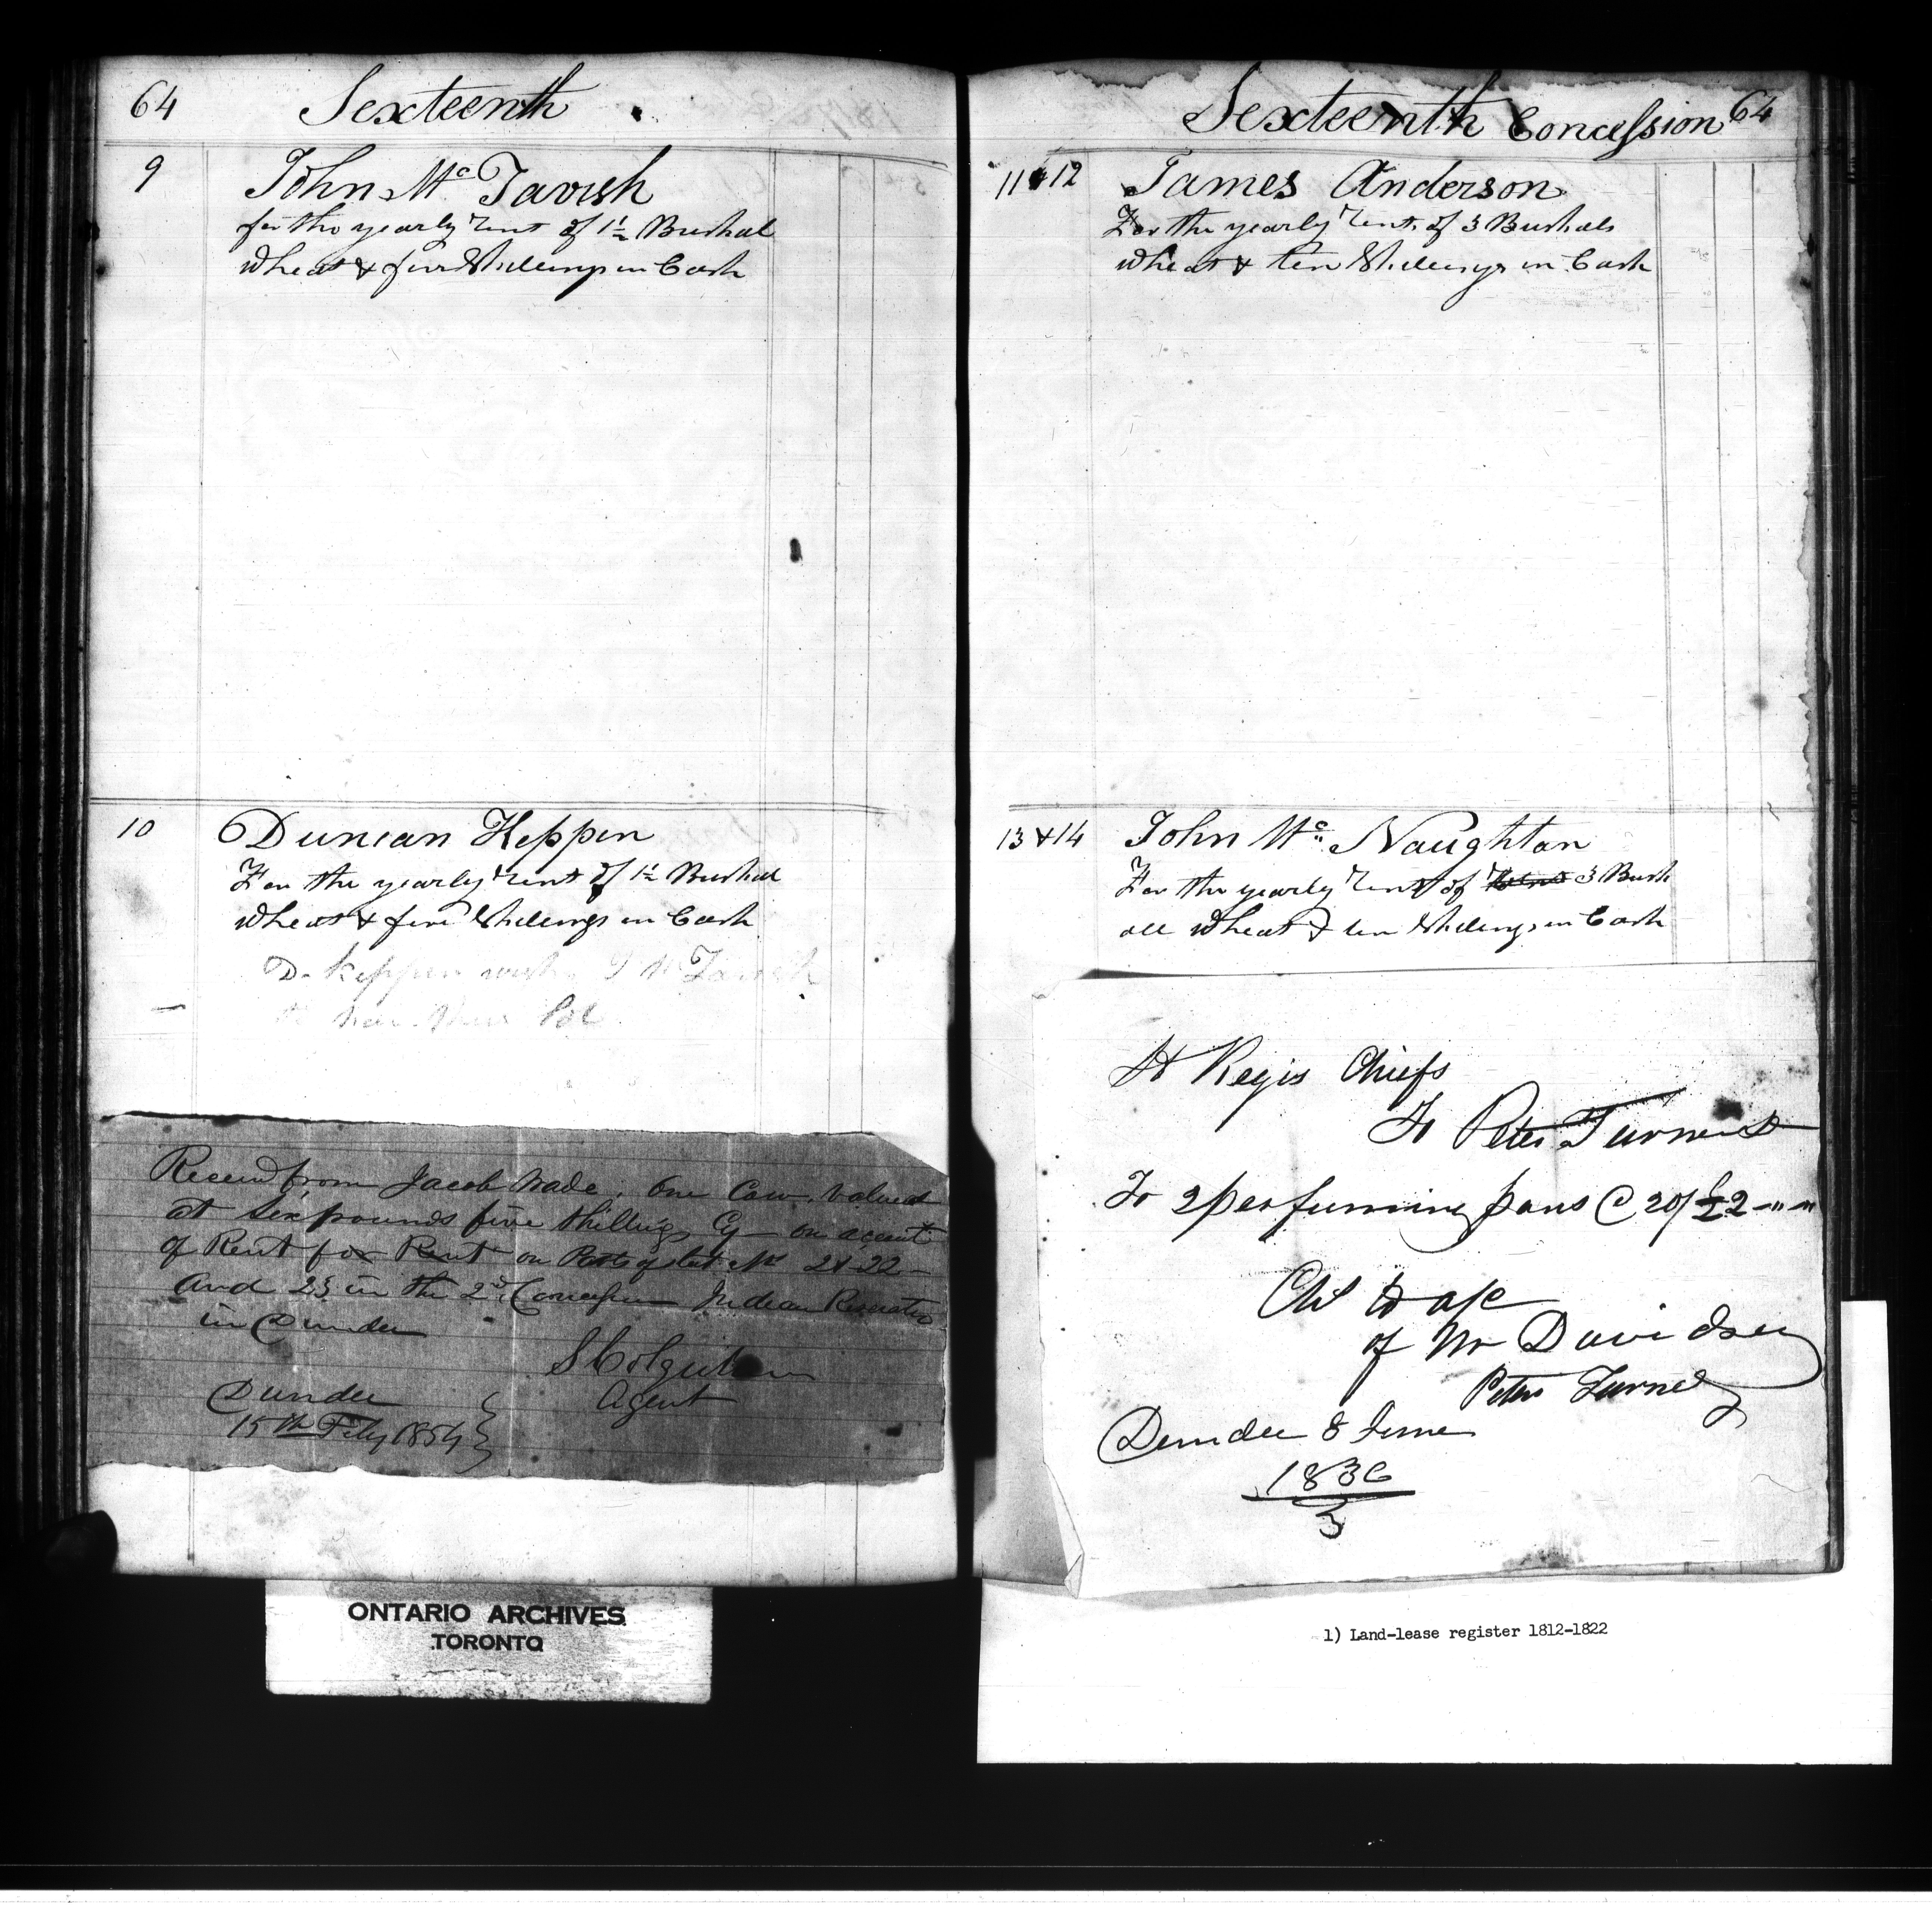 64 Sexteenth
9 John Mc Tavish
for the yearly rent of 1½ Bushal
Wheat & five Shillings in Cash
10 Duncan Keppen
For the yearly rent of 1½ Bushal
Wheat & five Shillings in Cash
D. Keppen wishes J Mc Tavish
to have this Lot
Received from Jacob Wade, One Cow, valued
at Six pounds five Shillings Cy – on accunt
of Rent for Rent on Parts of Lot No 21 22 –
and 23 in the 2nd Concession Indian Reservation
in Dundee
S Colquhoun
Agent
Dundee
15th Feby 1854
ONTARIO ARCHIVES
TORONTO
Sexteenth Concession 64
11 & 12 James Anderson
For the yearly rent of 3 Bushals
Wheat & ten Shillings in Cash
13 & 14 John Mc Naughton
For the yearly rent of 3 Bush
all Wheat & ten Shillings in Cash
St Regis Chiefs
To Peter Turner Dr
To 2 perfuming pans @ 20/ £2 -"-"
of Mr Davidson
Peter Turner
Dundee 8 June
1836
3
1) Land-lease register 1812-1822